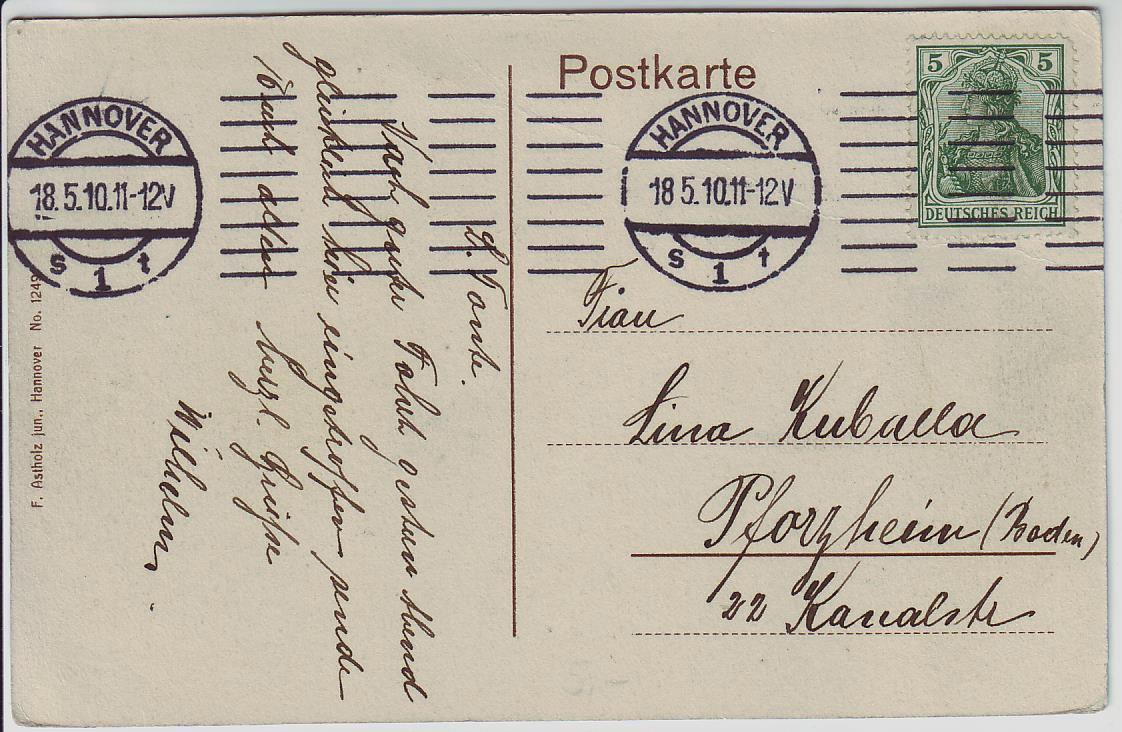 Postkarte
5 5
DEUTSCHES REICH
HANNOVER
18.5.10.11-12V
S 1 t
HANNOVER
18.5.10.11-12V
S 1 t
L. Tante.
Nach guter Fahrt gestern Abend
glücklich hier eingetroffen sende
Euch allen herzl. Grüße
Wilhelm.
Frau
Lina Kuballa
Pforzheim (Baden)
22 Kanalstr
F. Astholz jun., Hannover No. 1249